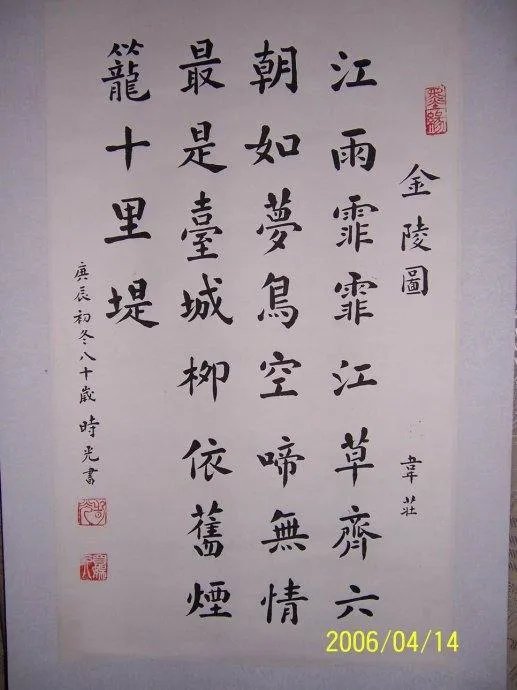 金陵圖
韋莊
江雨霏霏江草齊六
朝如夢鳥空啼無情
最是臺城柳依舊煙
籠十里堤
庚辰初冬八十歲時光書
2006/04/14